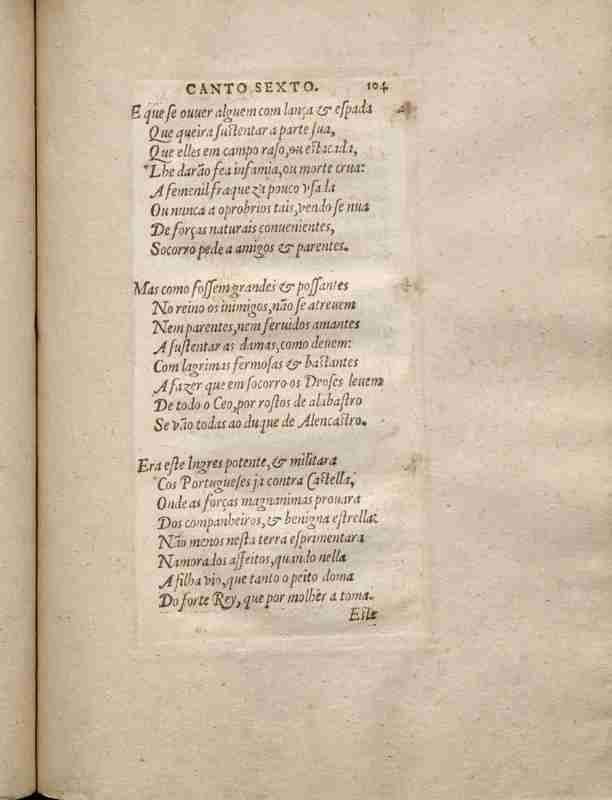 CANTO SEXTO. 104
E que se ouuer alguem com lança & espada
Que queira sustentar a parte sua,
Que elles em campo raso, ou estacada,
Lhe darão fea infamia, ou morte crua:
A femenil fraqueza pouco vsada
Ou nunca a oprobrios tais, vendo se nua
De forças naturais conuenientes,
Socorro pede a amigos & parentes.
Mas como fossem grandes & possantes
No reino os inimigos, não se atreuem
Nem parentes, nem feruidos amantes
A sustentar as damas, como deuem:
Com lagrimas fermosas & bastantes
A fazer que em socorro os Deoses leuem
De todo o Ceo, por rostos de alabastro
Se vão todas ao duque de Alencastro.
Era este Ingres potente, & militara
Cos Portugueses ja contra Castella,
Onde as forças magnanimas prouara
Dos companheiros, & benigna estrella:
Não menos nesta terra esprimentara
Namorados affeitos, quando nella
A filha vio, que tanto o peito doma
Do forte Rey, que por molher a toma.
Este